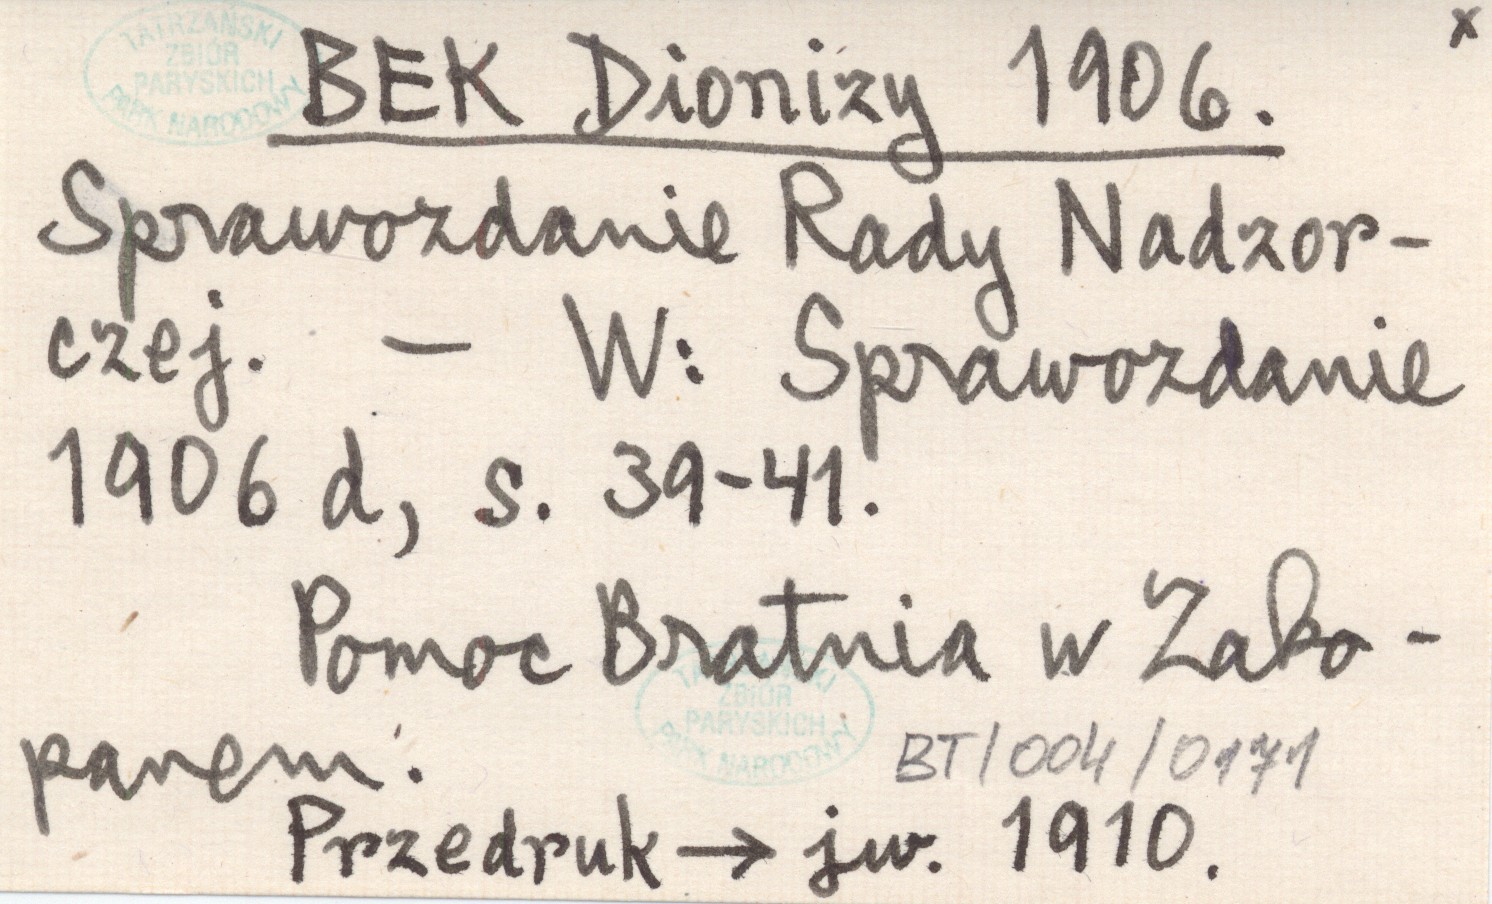 x
TATRZAŃSKI
ZBIÓR
PARYSKICH
PARK NARODOWY
BEK Dionizy 1906.
Sprawozdanie Rady Nadzor-
czej. — W: Sprawozdanie
1906 d, s. 39-41.
Pomoc Bratnia w Zako-
panem.
TATRZAŃSKI
ZBIÓR
PARYSKICH
PARK NARODOWY
BT/004/0171
Przedruk → jw. 1910.